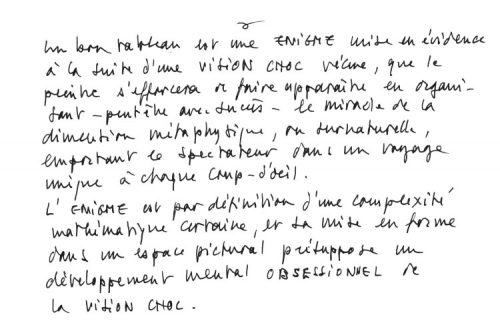 Un bon tableau est une ENIGME mise en évidence
à la suite d'une VISION CHOC vécue, que le
peintre s'efforcera de faire apparaître en organi-
sant - peut-être avec succès - le miracle de la
dimension métaphysique, ou surnaturelle,
emportant le spectateur dans un voyage
unique à chaque coup-d'oeil.
L'ENIGME est par définition d'une complexité
mathématique certaine, et sa mise en forme
dans un espace pictural présuppose un
développement mental OBSESSIONNEL de
la VISION CHOC.